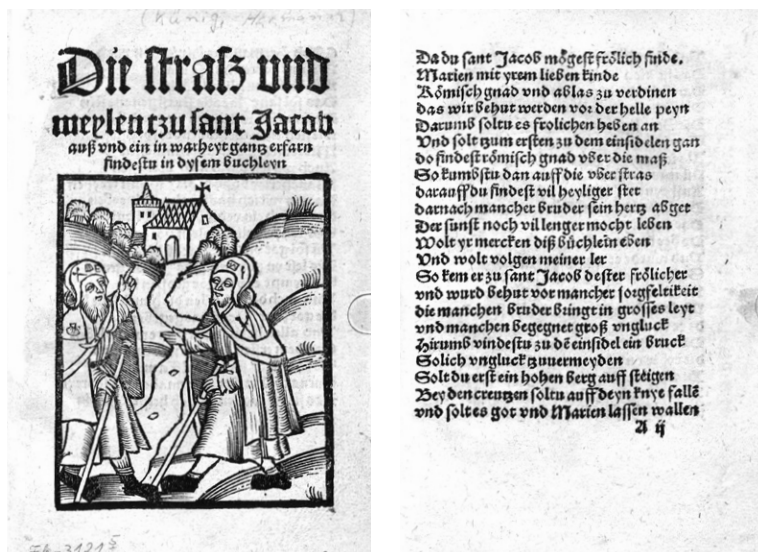 (Künig, Hermann)
Die straſz und
meylen tzu sant Jacob
auß vnd ein in warheyt gantz erfarn
findestu in dysem buchleyn
Da du sant Jacob mögest frölich finde.
Marien mit yrem lieben kinde
Römisch gnad vnd ablas zu verdinen
das wir behut werden vor der helle peyn
Darumb soltu es frolichen heben an
Und solt tzum ersten zu dem einsidelen gan
do findest römisch gnad vber die maß
So kumbstu dan auff die vber stras
darauff du findest vil heyliger stet
darnach mancher bruder sein hertz abget
Der sunst noch vil lenger mocht leben
Wolt yr mercken diß büchlein eben
Und wolt volgen meiner ler
So kem er zu sant Jacob dester frölicher
vnd wurd behut vor mancher sorgfeltikeit
die manchen bruder bringt in grosses leyt
vnd manchen begegnet groß vngluck
Hirumb vindestu zu dē einsidel ein bruck
Solich vngluck tzuuermeyden
Solt du erst ein hohen berg auff steigen
Bey den creutzen soltu auff deyn knye fallē
vnd solt es got vnd Marien lassen wallen
A ij